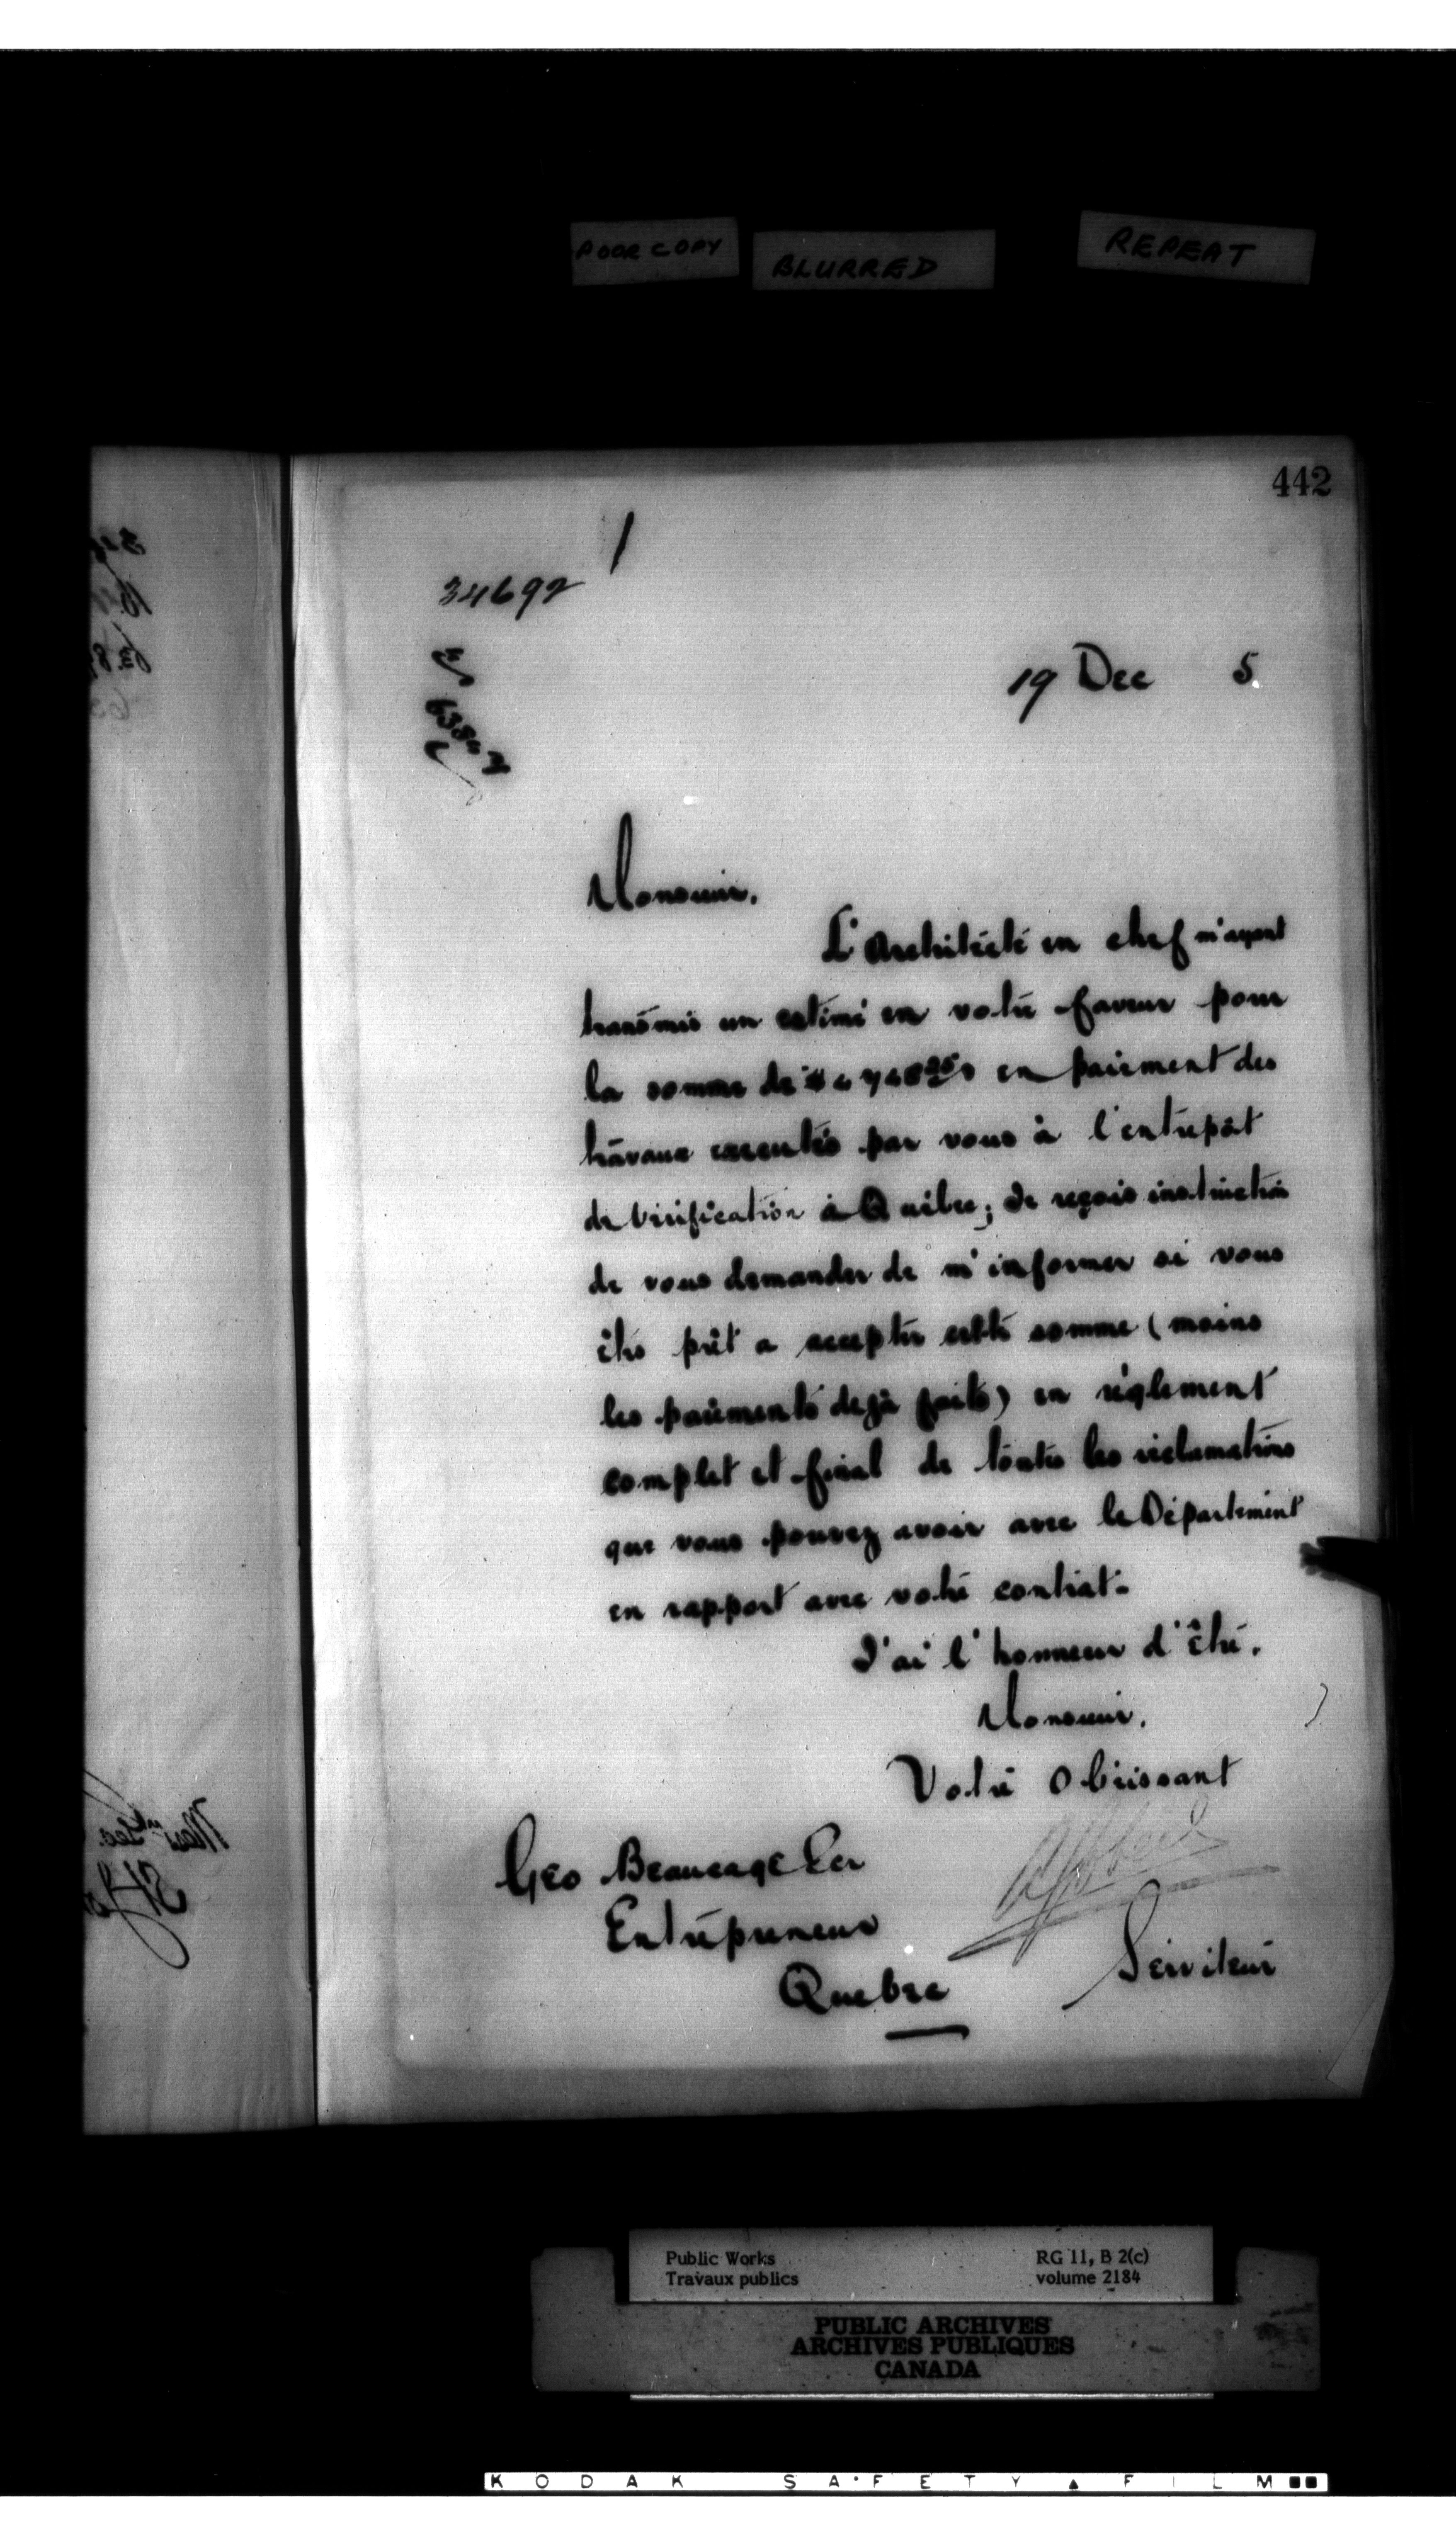 POOR COPY BLURRED REPEAT
442
34692
19 Dec 5
Monsieur,
L'Architècte en chef m'ayant
transmis un estimé en votre faveur pour
la somme de en paiement des
travaux executés par vous à l'entrepôt
de Vérification à Quebec; Je reçois instruction
de vous demander de m'informer si vous
êtes prêt a accepter cette somme (moins
les paiements dejà faits) en règlement
complet et final de toutes les réclamations
que vous pouvez avoir avec le Département
en rapport avec votre contrat.
J'ai l'honneur d'être,
Monsieur,
Votre Obéissant
Geo Beaucage Ecr
Entrepreneur
Serviteur
Quebec
Public Works RG 11, B 2(c)
Travaux publics volume 2184
PUBLIC ARCHIVES
ARCHIVES PUBLIQUES
CANADA
KODAK SAFETY FILM